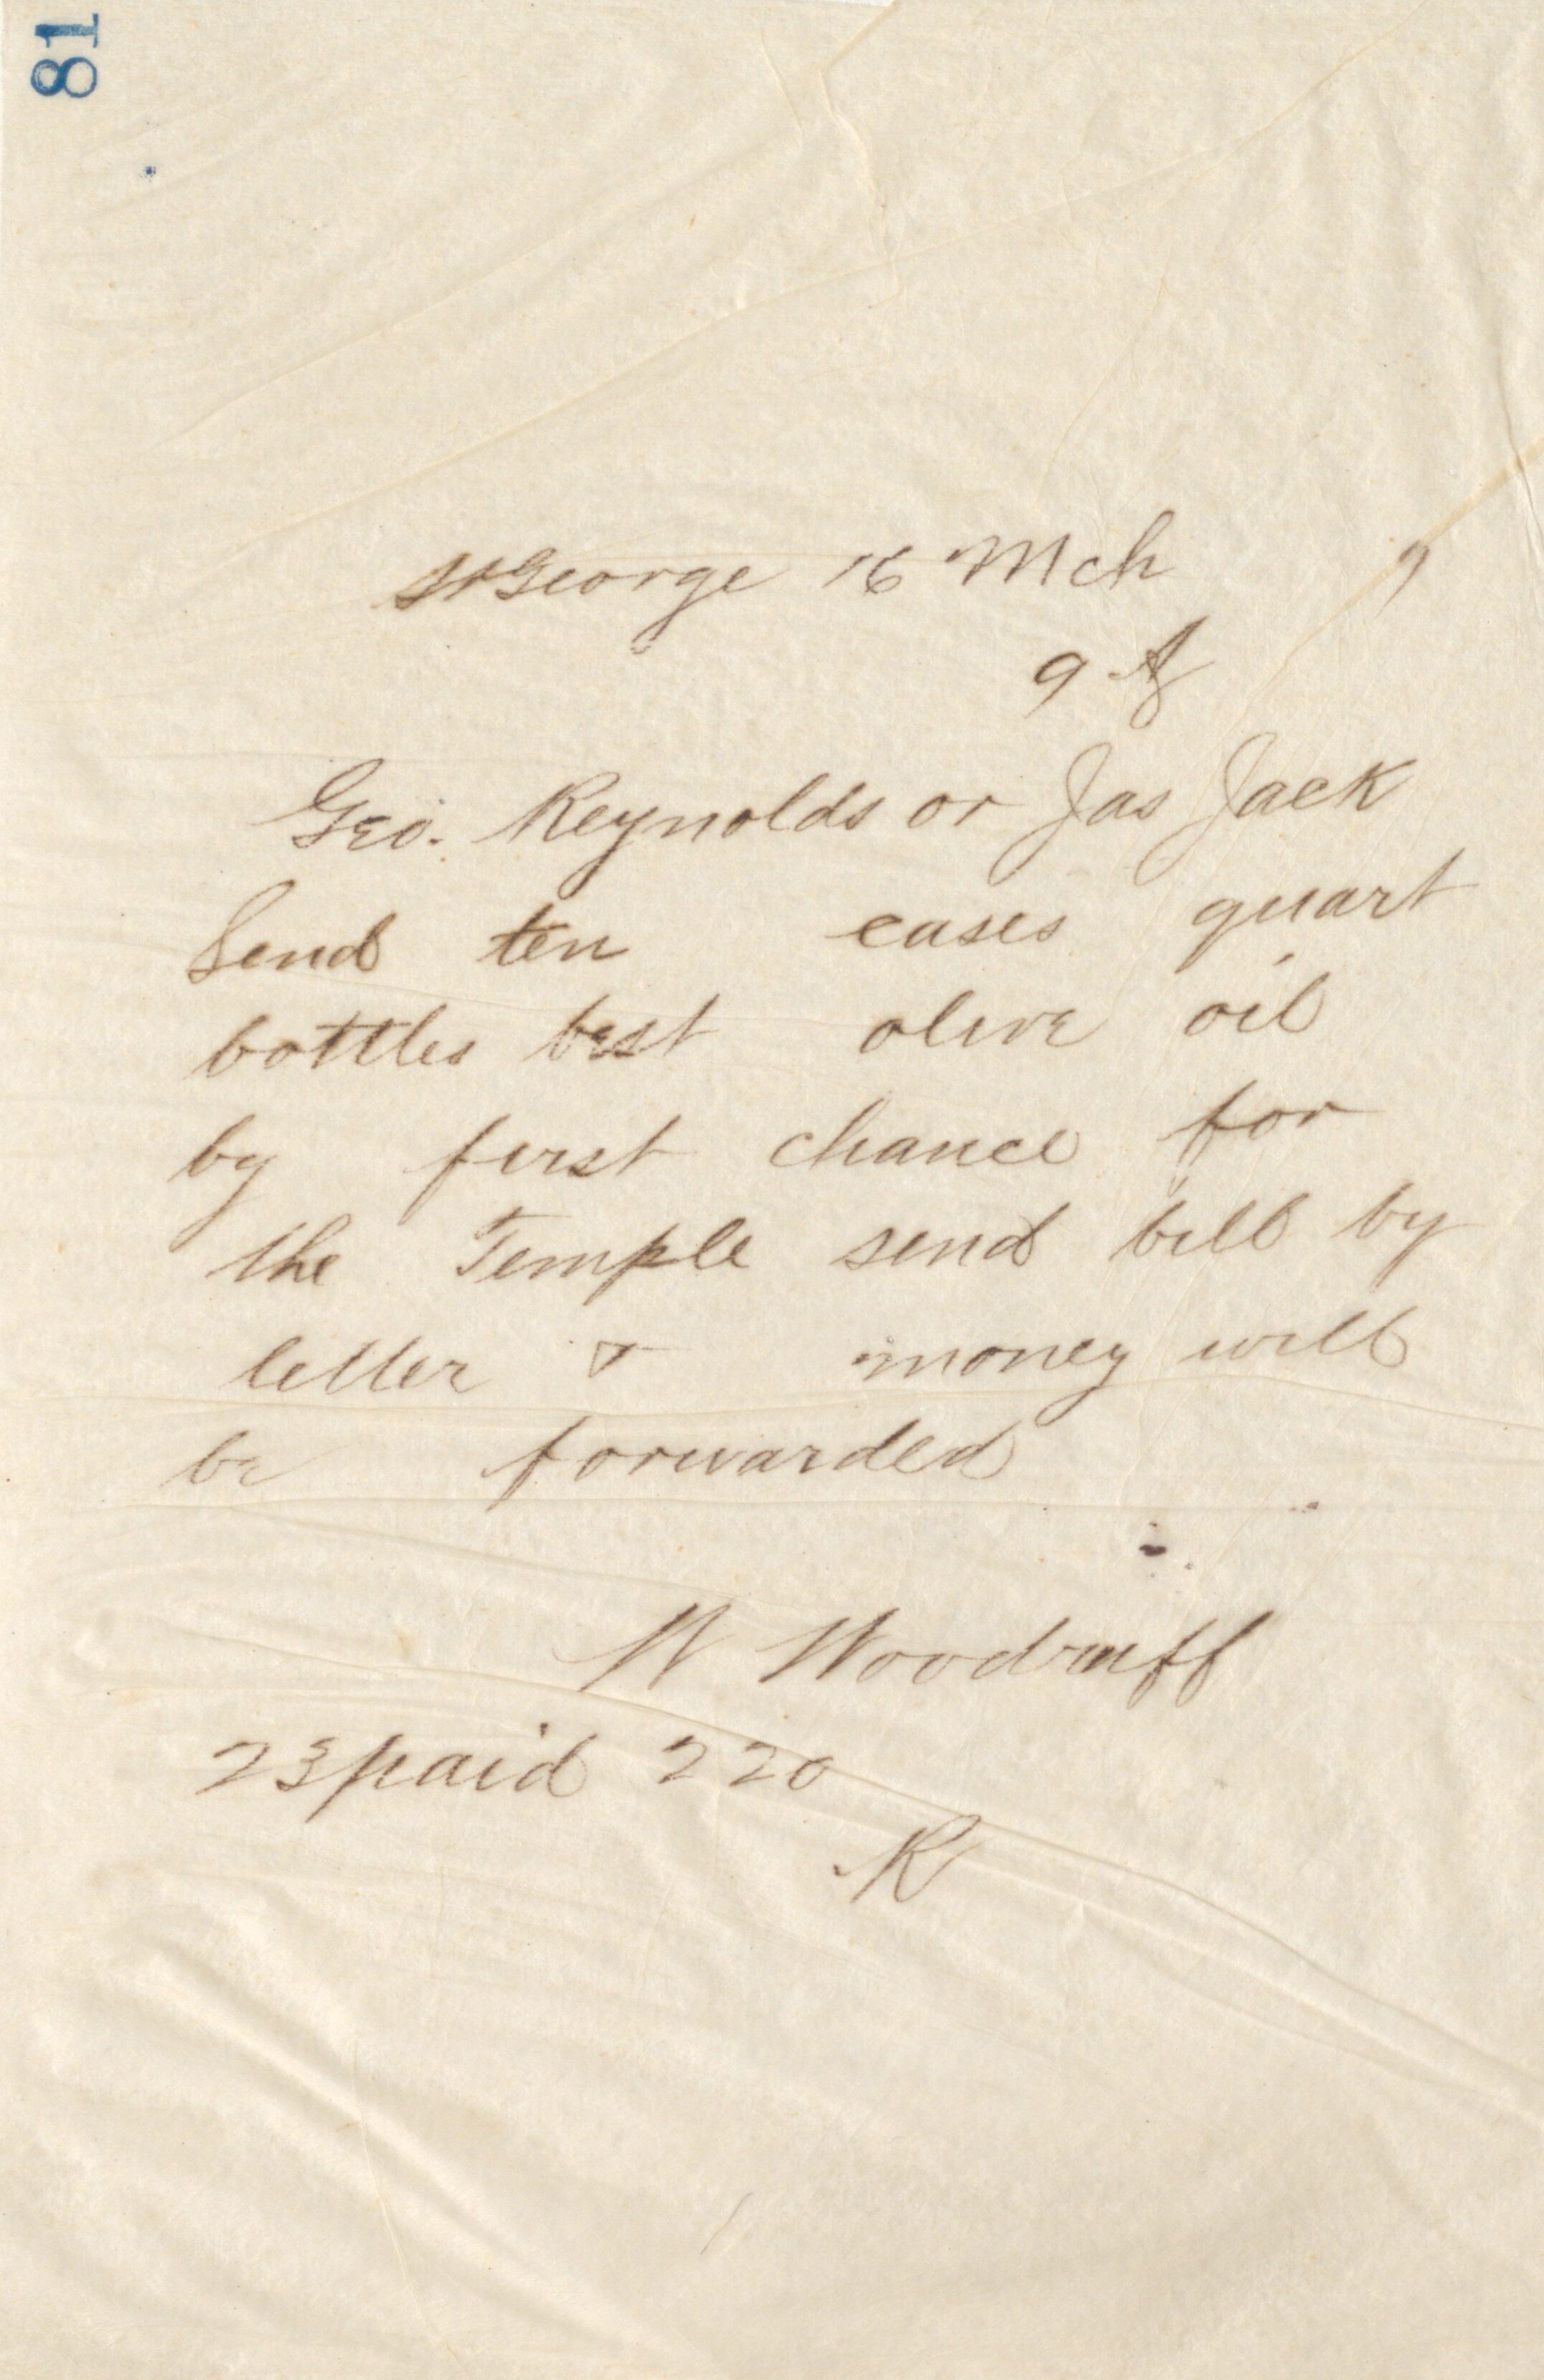 81
St George 16 Mch 9
9 A
Geo. Reynolds or Jas Jack
Send ten cases quart
bottles best olive oil
by first chance for
the Temple send bill by
letter & money will
be forwarded
W Woodruff
23 paid 220
R